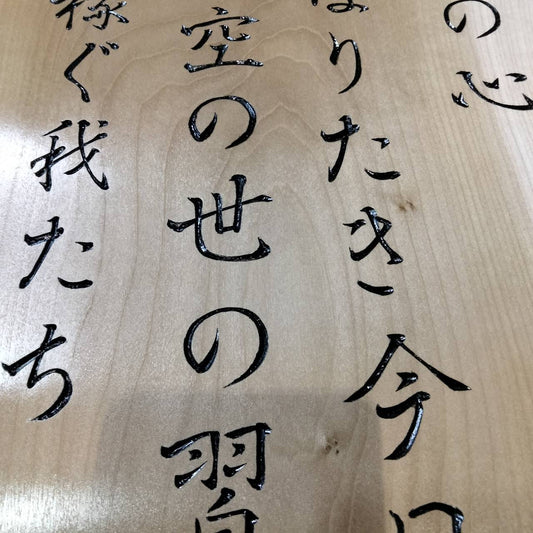 の心
ほりたき今日
空の世の習
稼ぐ我たち